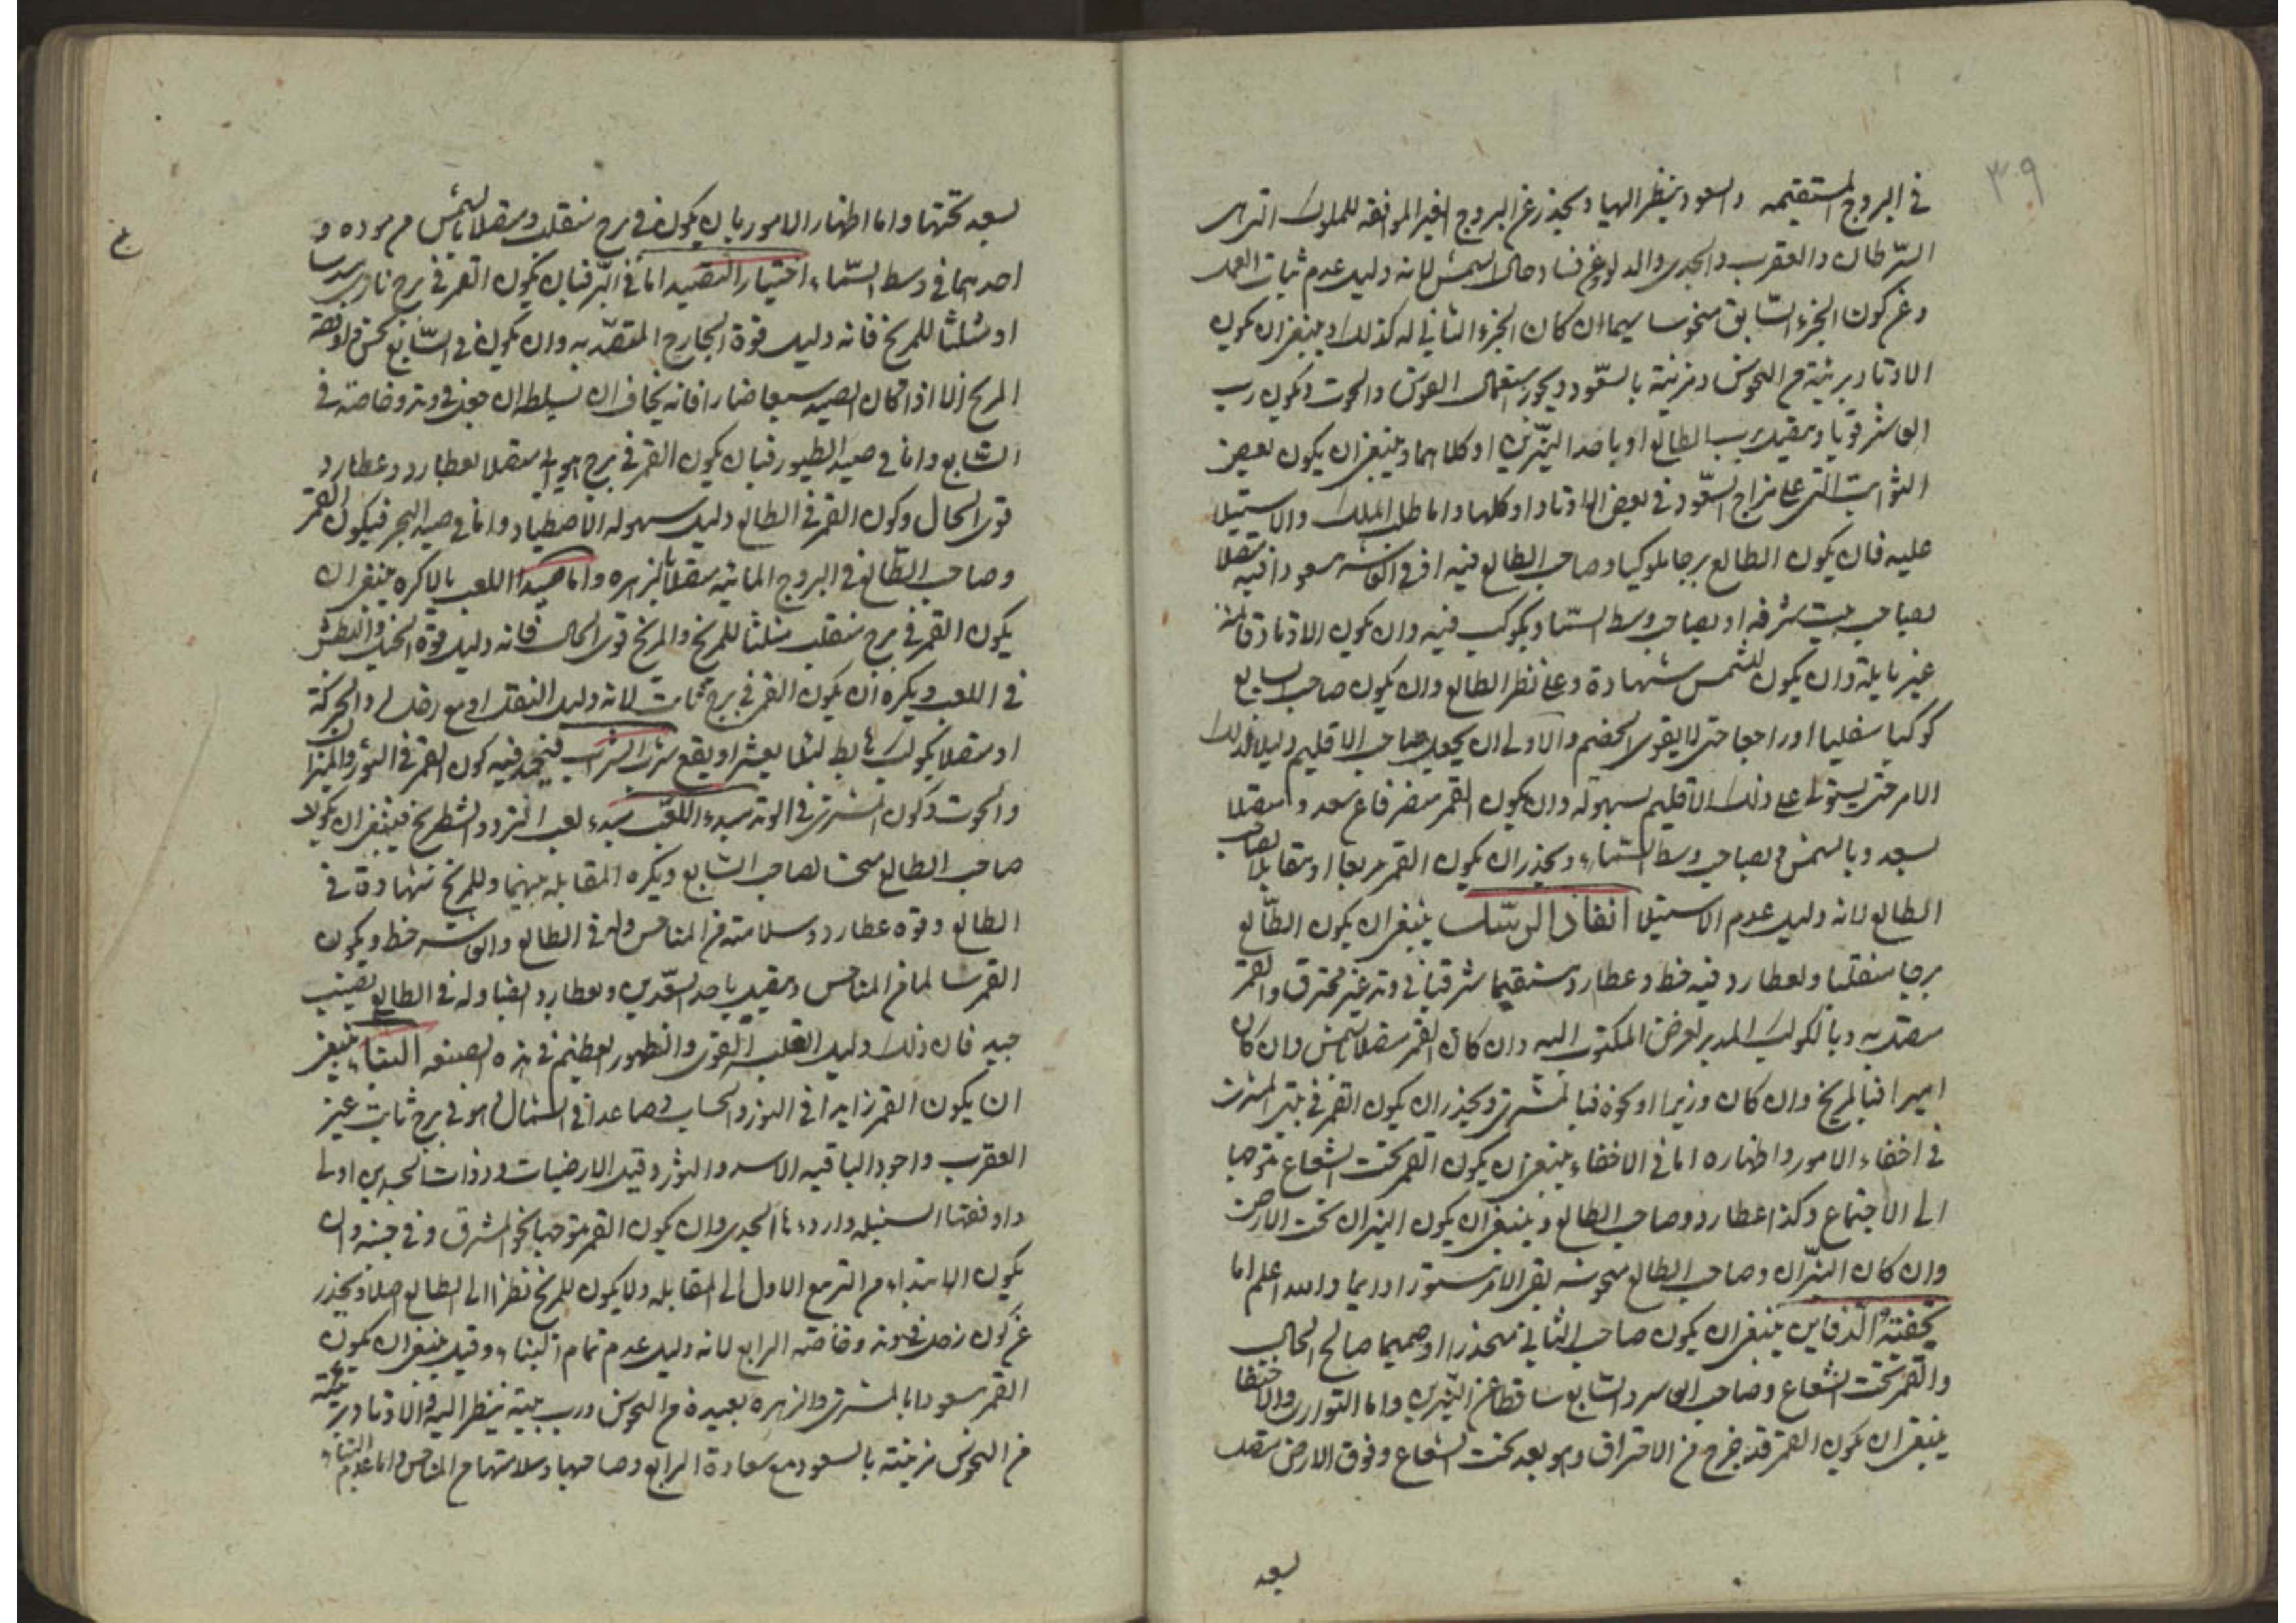 ٣٩
في البروج المستقيمه والسعود ينظر اليها ويحذر عن البروج الغير الموافقه للملوك التي هي
السّرطان والعقرب والجدي والدلو وعن فساد حال الشمس لانه دليل عدم ثبات العمل
وعن كون الجزء السّابق منحوسا سيما ان كان الجزء الثاني له كذلك وينبغي ان يكون
الاوتاد بريئة من النحوس ومزينة بالسّعود ويجوز استعمال القوس والحوت ويكون رب
العاشر قويا ومتصل برب الطالع او باحد النيّرين او كلاهما وينبغي ان يكون بعض
الثوابت التي على مزاج السّعود في بعض الاوتاد او كلها واما طلب الملك والاستيلا
عليه فان يكون الطالع برجا ملوكيا وصاحب الطالع فيه او في العاشر مسعودا فيه متصلا
بصاحب بيت شرفه او بصاحب وسط السّما وبكوكب فيه وان يكون الاوتاد قائمة
غير مايلة وان يكون للشمس شهادة وعلى نظر الطالع وان يكون صاحب السابع
كوكبا سفليا او راجعا حتى لا يقوى الخصم والاولى ان يجعل صاحب الاقليم دليلا لذلك
الامر حتى يستولي على ذلك الاقليم بسهولة وان يكون القمر منصرفا عن سعد ومتصلا
بسعد وبالشمس وبصاحب وسط السّماء ويحذر ان يكون القمر مربعا او مقابلا لصاحب
الطالع لانه دليل عدم الاستيلا انفاذ الرسل ينبغي ان يكون الطّالع
برجا منقلبا ولعطارد فيه حظ وعطارد مستقيما شرقيا في وتد غير محترق والقمر
متصل به وبالكوكب المدبر لغرض المكتوب اليه وان كان القمر متصلا بالشمس وان كان
اميرا فبالمريخ وان كان وزيرا او نحوه فبالمشتري ويحذر ان يكون القمر في بيتي المشتري
في اخفاء الامور واظهاره اما في الاخفاء ينبغي ان يكون القمر تحت الشعاع متوجها
الى الاجتماع وكذا عطارد وصاحب الطالع وينبغي ان يكون النيران تحت الارض
وان كان النيّران وصاحب الطالع منحوسة بقي الامر مستورا دايما والله اعلم اما
تخفية الدفاين ينبغي ان يكون صاحب الثاني منحدرا او صميما صالح الحال
والقمر تحت الشعاع وصاحب العاشر والسّابع ساقطا عن النيّرين واما التواري والاختفا
ينبغي ان يكون القمر قد خرج من الاحتراق وهو بعد تحت الشعاع وفوق الارض متصل
بسعد
بسعد تحتها واما اظهار الامور بان يكون في برج منقلب ومتصلا بالشمس من مودة و
احدهما في وسط السّماء اختيار الصيد اما في البّر فبان يكون القمر في برج ناري
او مثلثا للمريخ فانه دليل قوة الجارح المتصيّد به وان يكون في السّابع نحس
المريخ الا اذا كان الصيد سبعا ضاريا فانه يخاف ان يسلطه ان جعل في وتد وخاصة في
السّابع واما في صيد الطيور فبان يكون القمر في برج هوايي متصلا بعطارد وعطارد
قوي الحال وكون القمر في الطالع دليل سهولة الاصطياد واما في صيد البحر فيكون القمر
وصاحب الطّالع في البروج المائية متصلا بالزهره واما اللعب بالاكره ينبغي ان
يكون القمر في برج منقلب مثلثا للمريخ والمريخ قوي الحال فانه دليل قوة الخيل والبطش
في اللعب ويكره ان يكون القمر في برج ثابت لانه دليل الثقل او مع زحل والحركة
او متصلا بكوكب هابط شرب الشراب فيحمد فيه كون القمر في الثور والميزان
والحوت وكون المشتري في الوتد لعب النرد والشطرنج فينبغي ان يكون
صاحب الطالع صاحب السّابع ويكره المقابله بينهما وللمريخ شهادة في
الطالع وقوة عطارد وسلامته من المناحس وله في الطالع والعاشر حظ ويكون
القمر سالما من المناحس ومتصل باحد السّعدين وبعطارد ايضا وله في الطالع نصيب
جيد فان ذلك دليل الغلب القوي والظهور العظيم في هذه الصنعه البناء ينبغي
ان يكون القمر زايدا في النور والحساب وصاعدا في الشمال وهو في برج ثابت غير
العقرب واجود الباقيه الاسد والثور وقيل الارضيات وذوات الجسدين اولى
واوفقها السنبله واردءها الجدي وان يكون القمر متوجها نحو المشرق وان
يكون الابتداء من التربيع الاول الى المقابله ولا يكون للمريخ نظر الى الطالع اصلا ويحذر
عن كون زحل في وتد وخاصة الرابع لانه دليل عدم تمام البناء وقيل ينبغي ان يكون
القمر مسعودا بالمشتري والزهره بعيدة من النحوس ورب بيته ينظر اليه والاوتاد بريئة
من النحوس مزينة بالسعود مع سعادة الرابع وصاحبها وسلامتهما من المناحس واما هدم البناء